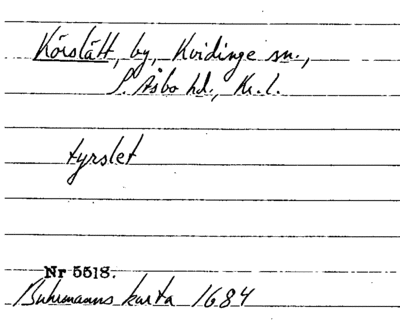 Körslätt, by, Kvidinge sn.,
S. Åsbo hd., Kr. l.
tyrslet
Nr 5518.
Buhrmanns karta 1684